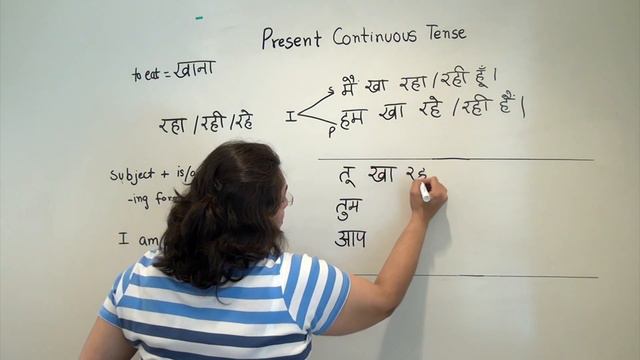 Present Continuous Tense
to eat = खाना
रहा / रही / रहे
subject + is/
-ing for
I am
I
s मैं खा रहा / रही हूँ।
p हम खा रहे / रही हैं।
तू खा रह
तुम
आप